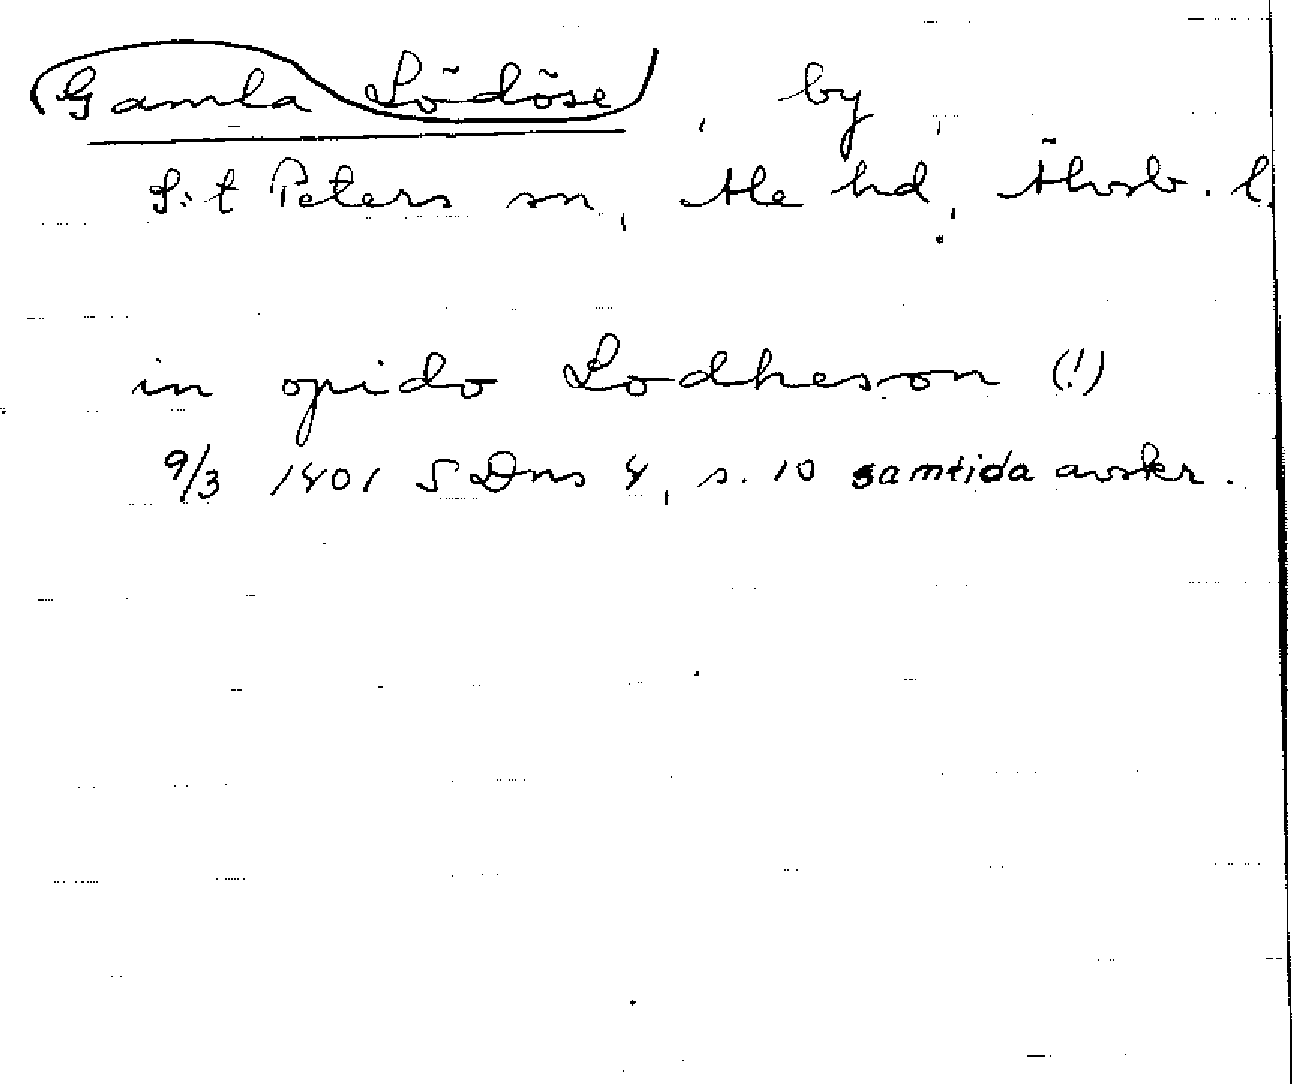 Gamla Lödöse, by
S:t Peters sn, Ale hd, Älvsb. l.
in opido Lodheson (!)
9/3 1401 SDns 4, s. 10 samtida avskr.